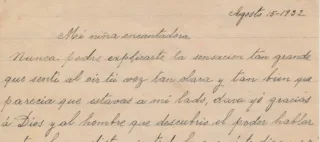 Agosto 15-1932
Mi niña encantadora
Nunca podre explicarte la sensacion tan grande
que senti al oir tu voz tan clara y tan bien que
parecia que estavas a mi lado, dava yo gracias
á Dios y al hombre que descubrio el poder hablar